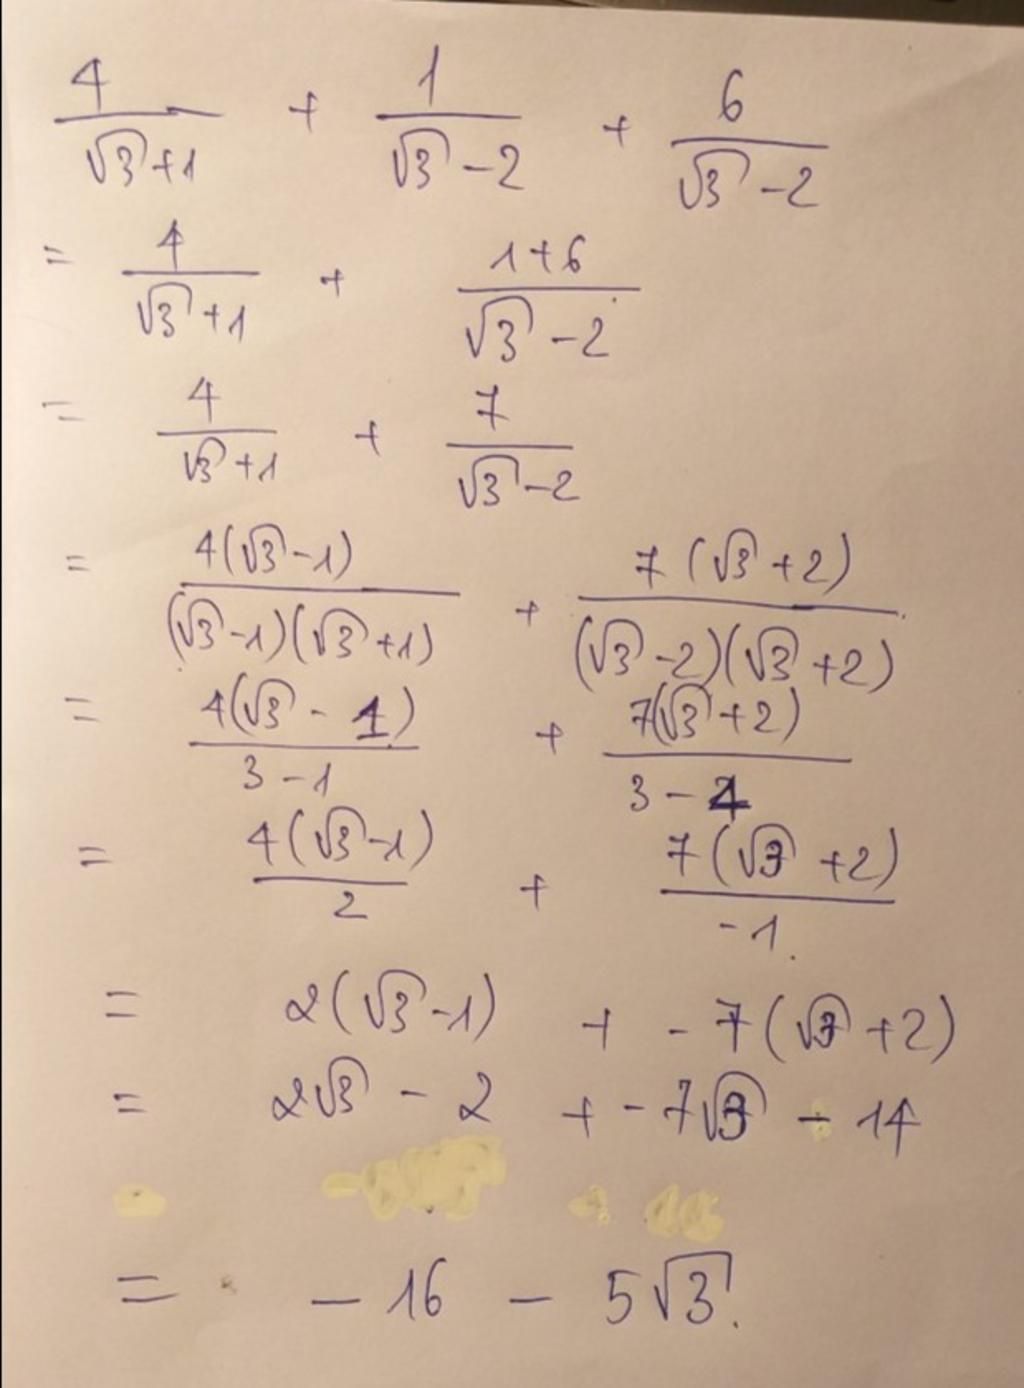 4/(√3+1) + 1/(√3-2) + 6/(√3-2)
= 4/(√3+1) + (1+6)/(√3-2)
= 4/(√3+1) + 7/(√3-2)
= 4(√3-1)/((√3-1)(√3+1)) + 7(√3+2)/((√3-2)(√3+2))
= 4(√3-1)/(3-1) + 7(√3+2)/(3-4)
= 4(√3-1)/2 + 7(√3+2)/-1.
= 2(√3-1) + -7(√3+2)
= 2√3 - 2 + -7√3 - 14
= -16 - 5√3.